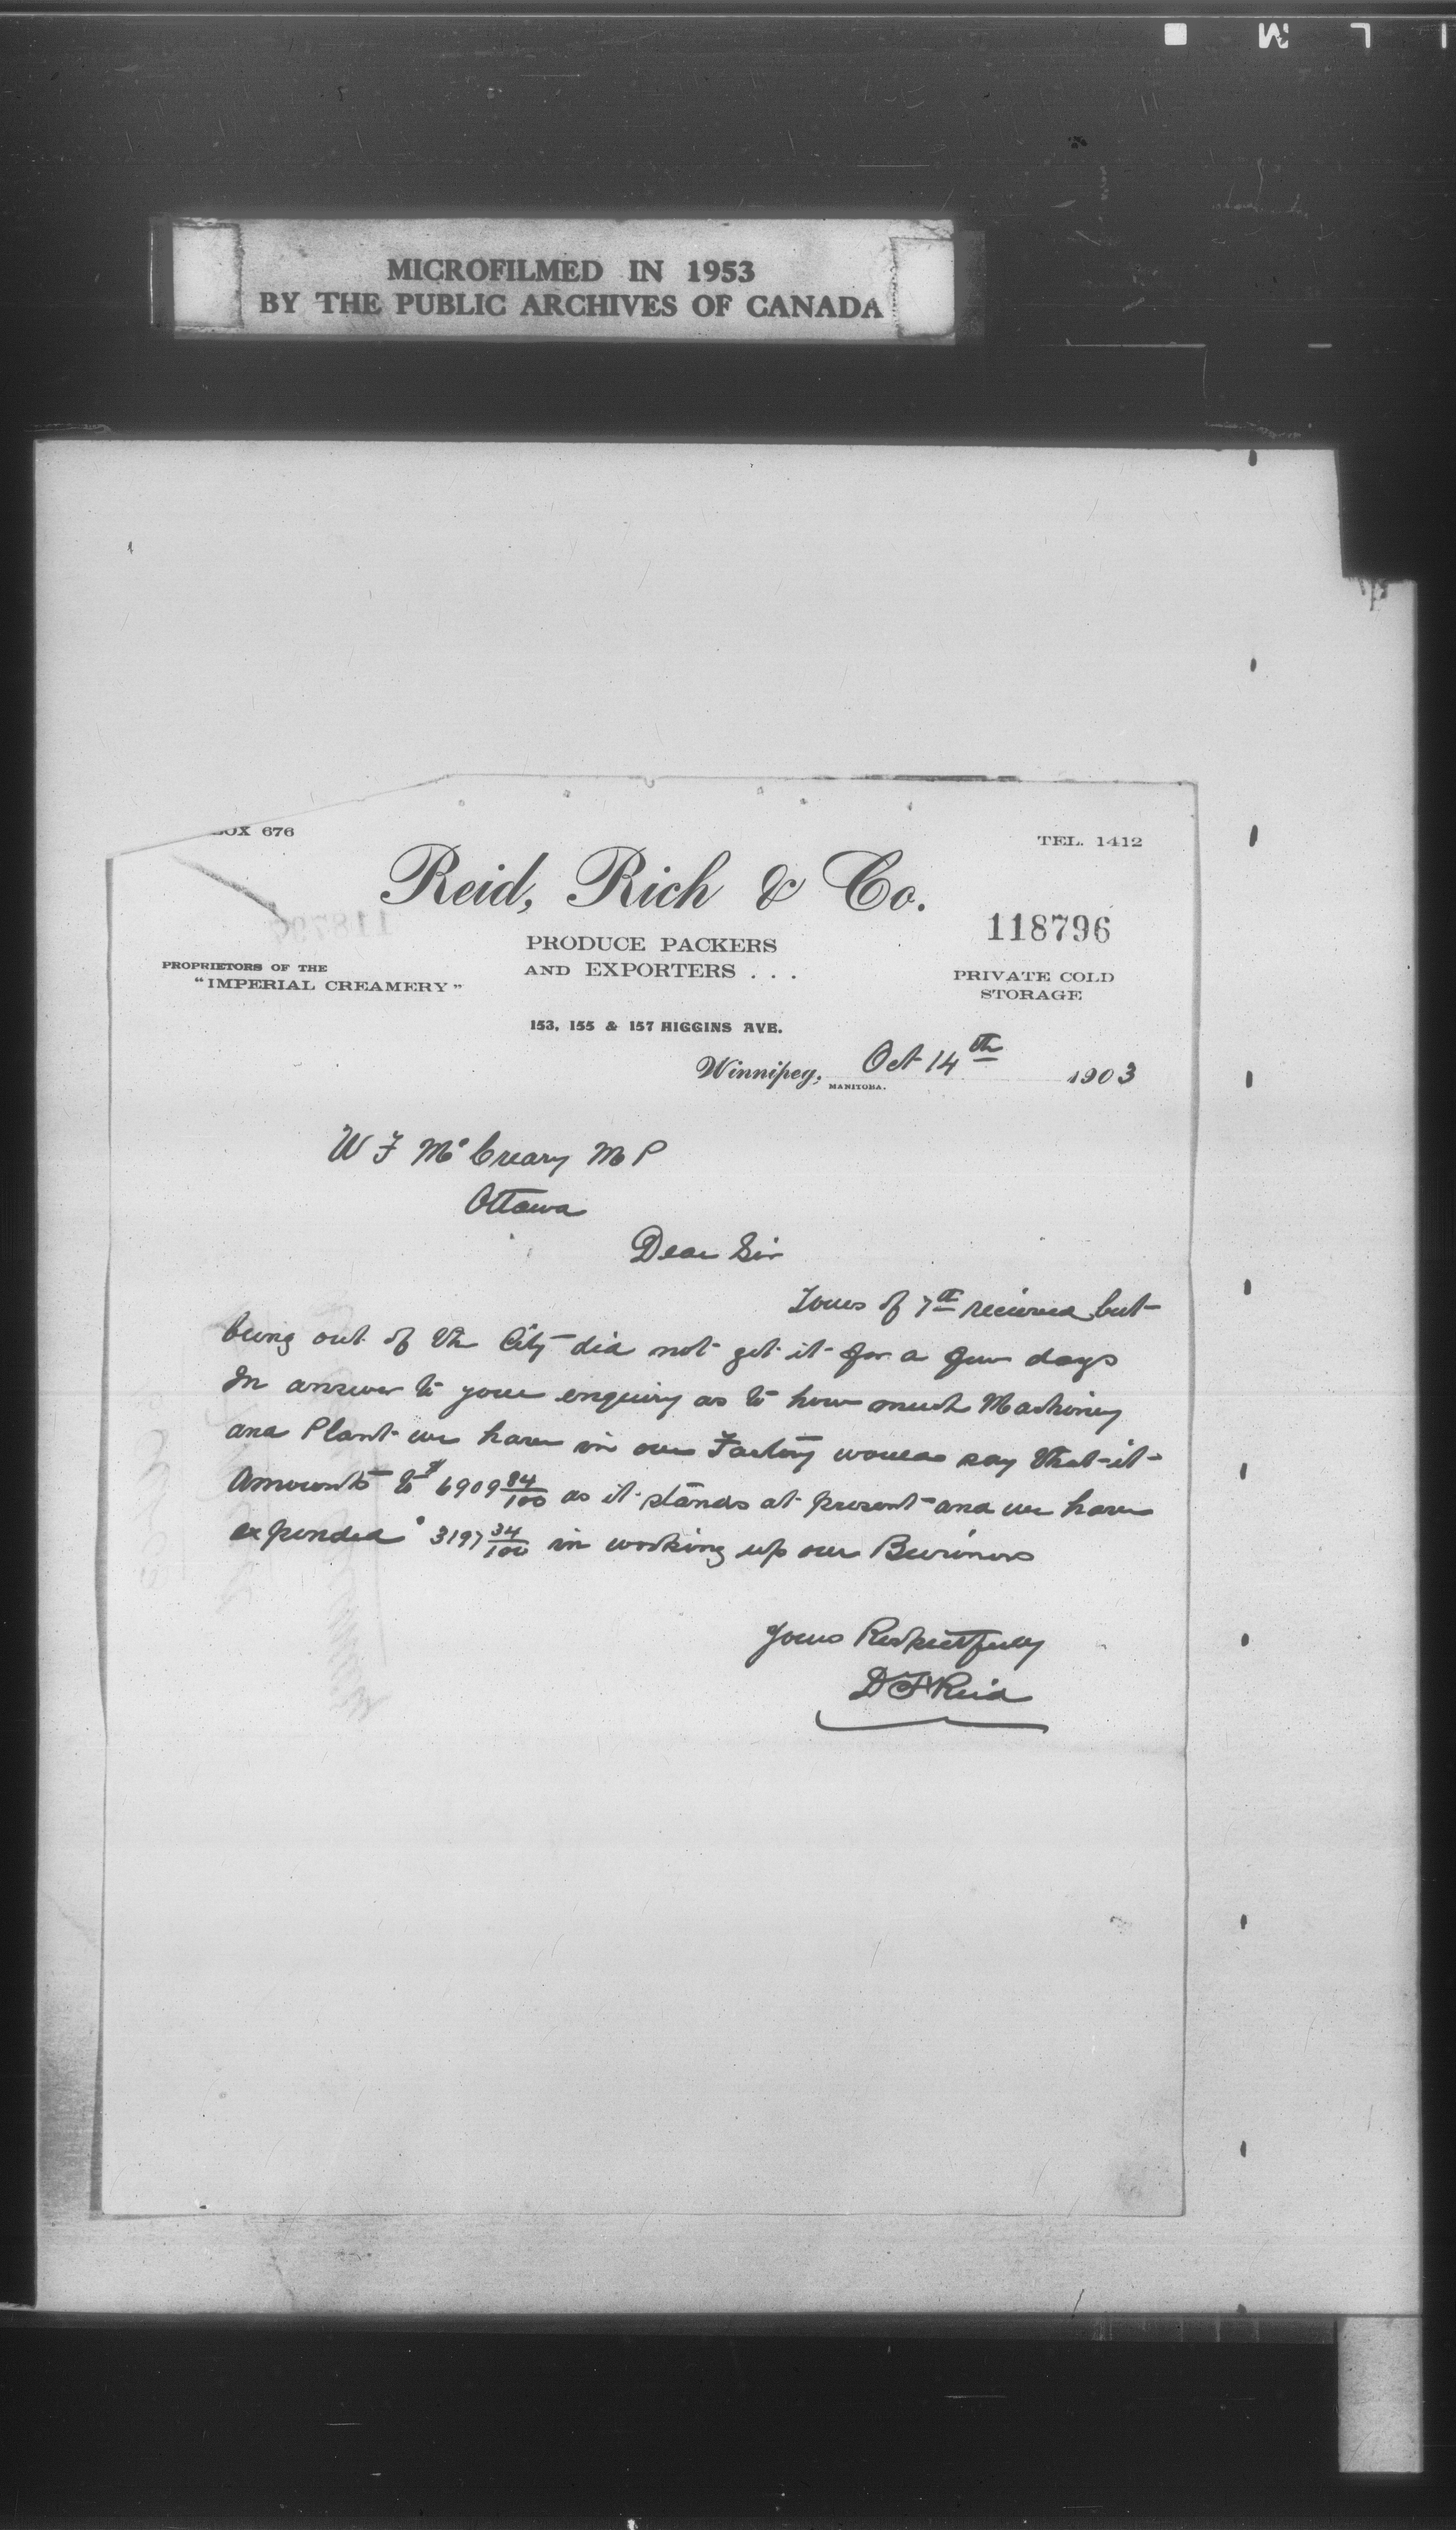 MICROFILMED IN 1953
BY THE PUBLIC ARCHIVES OF CANADA
BOX 676
TEL. 1412
Reid, Rich & Co.
118796
PRODUCE PACKERS
AND EXPORTERS . . .
PROPRIETORS OF THE
"IMPERIAL CREAMERY"
PRIVATE COLD
STORAGE
153, 155 & 157 HIGGINS AVE.
Winnipeg, Oct 14th 1903
MANITOBA.
W F McCreary M P
Ottawa
Dear Sir
Yours of 7th received but
being out of the City did not get it for a few days
In answer to your enquiry as to how much Machinery
and Plant we have in our Factory would say that it
Amounts to $6909 84/100 as it stands at present and we have
expended $3197 34/100 in working up our Business
Yours Respectfully
D F Reid